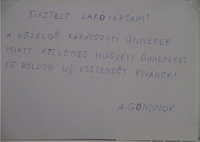 TISZTELT LAKÓTÁRSAIM!
A KÖZELGŐ KARÁCSONYI ÜNNEPEK
MIATT KELLEMES HÚSVÉTI ÜNNEPEKET
ÉS BOLDOG ÚJ ESZTENDŐT KÍVÁNOK!
A GONDNOK